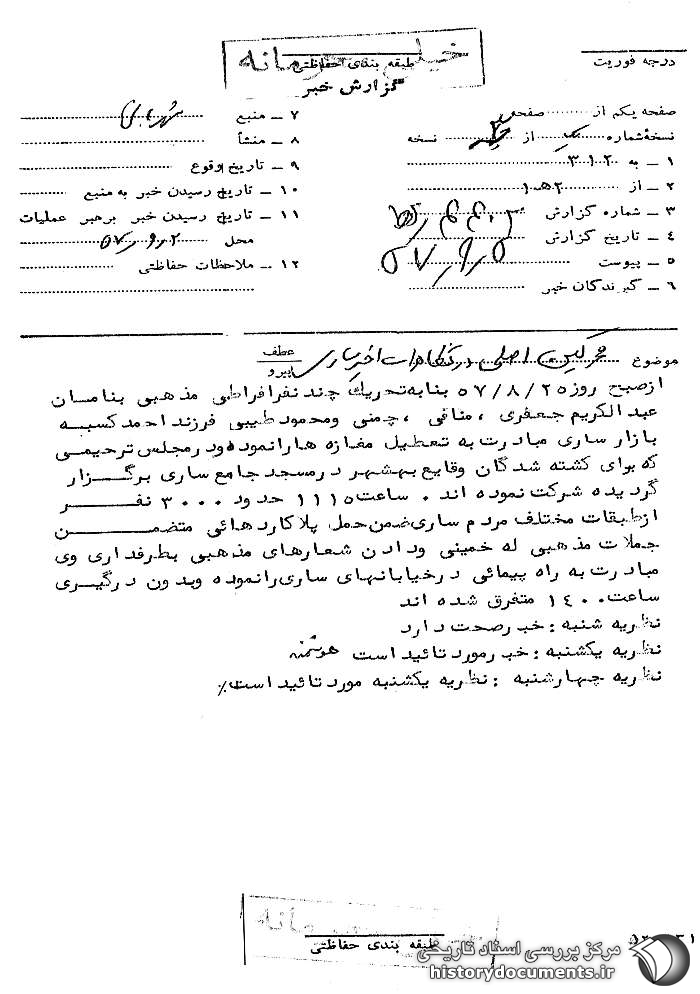 خیلی محرمانه
طبقه بندی حفاظتی
گزارش خبر
درجه فوریت
صفحه یکم از صفحه
نسخهٔ شماره از نسخه
۱ – به ۳۱۲
۲ – از ۲هـ۱
۳ – شماره گزارش
۴ – تاریخ گزارش ۵۷/۹/۵
۵ – پیوست
۶ – گیرندگان خبر
۷ – منبع
۸ – منشأ
۹ – تاریخ وقوع
۱۰ – تاریخ رسیدن خبر به منبع
۱۱ – تاریخ رسیدن خبر برهبر عملیات
محل ۵۷/۹/۲
۱۲ – ملاحظات حفاظتی
موضوع محرکین اصلی در تظاهرات اخیر ساری
عطف
پیرو
ازصبح روز ۵۷/۸/۲۵ بنابه تحریک چند نفر افراطی مذهبی بنامسان
عبدالکریم جعفری ، منافی ، چمنی ومحمود طیبی فرزند احمد کسبه
بازار ساری مبادرت به تعطیل مغازه هارانموده ودرمجلس ترحیمی
که برای کشته شدگان وقایع بهشهر درمسجد جامع ساری برگزار
گردیده شرکت نموده اند . ساعت ۱۱۱۵ حدود ۳۰۰۰ نفر
ازطبقات مختلف مردم ساری ضمن حمل پلاکاردهائی متضمن
جملات مذهبی له خمینی ودادن شعارهای مذهبی بطرفداری وی
مبادرت به راه پیمائی درخیابانهای ساری رانموده وبدون درگیری
ساعت ۱۴۰۰ متفرق شده اند
نظریه شنبه : خبرصحت دارد
نظریه یکشنبه : خبرمورد تائید است هوشمند
نظریه چهارشنبه : نظریه یکشنبه مورد تائید است٪
طبقه بندی حفاظتی
مرکز بررسی اسناد تاریخی
historydocuments.ir